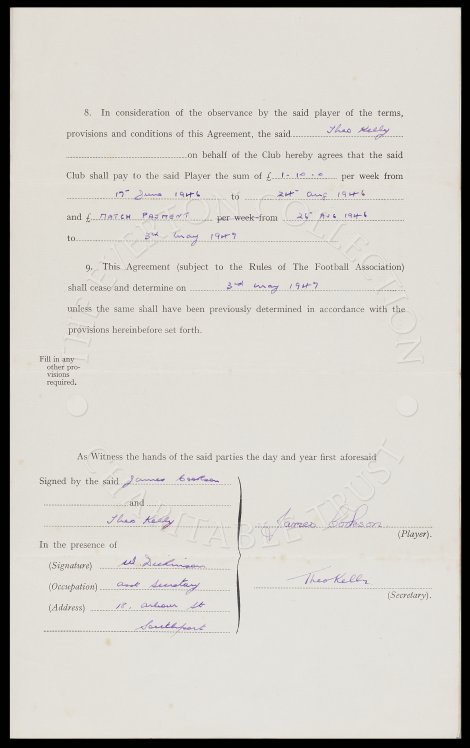 8. In consideration of the observance by the said player of the terms,
provisions and conditions of this Agreement, the said Theo Kelly
on behalf of the Club hereby agrees that the said
Club shall pay to the said Player the sum of £ 1-10-0 per week from
17th June 1946 to 24th Aug 1946
and £ MATCH PAYMENT per week from 26th AUG 1946
to 3rd May 1947
9. This Agreement (subject to the Rules of The Football Association)
shall cease and determine on 3rd May 1947
unless the same shall have been previously determined in accordance with the
provisions hereinbefore set forth.
Fill in any
other pro-
visions
required.
As Witness the hands of the said parties the day and year first aforesaid
Signed by the said James Cookson
and
Theo Kelly
James Cookson
(Player).
In the presence of
(Signature) W Dickinson
(Occupation) asst Secretary
Theo Kelly
(Secretary).
(Address) 18, Arbour St
Southport
THE EVERTON COLLECTION
CHARITABLE TRUST